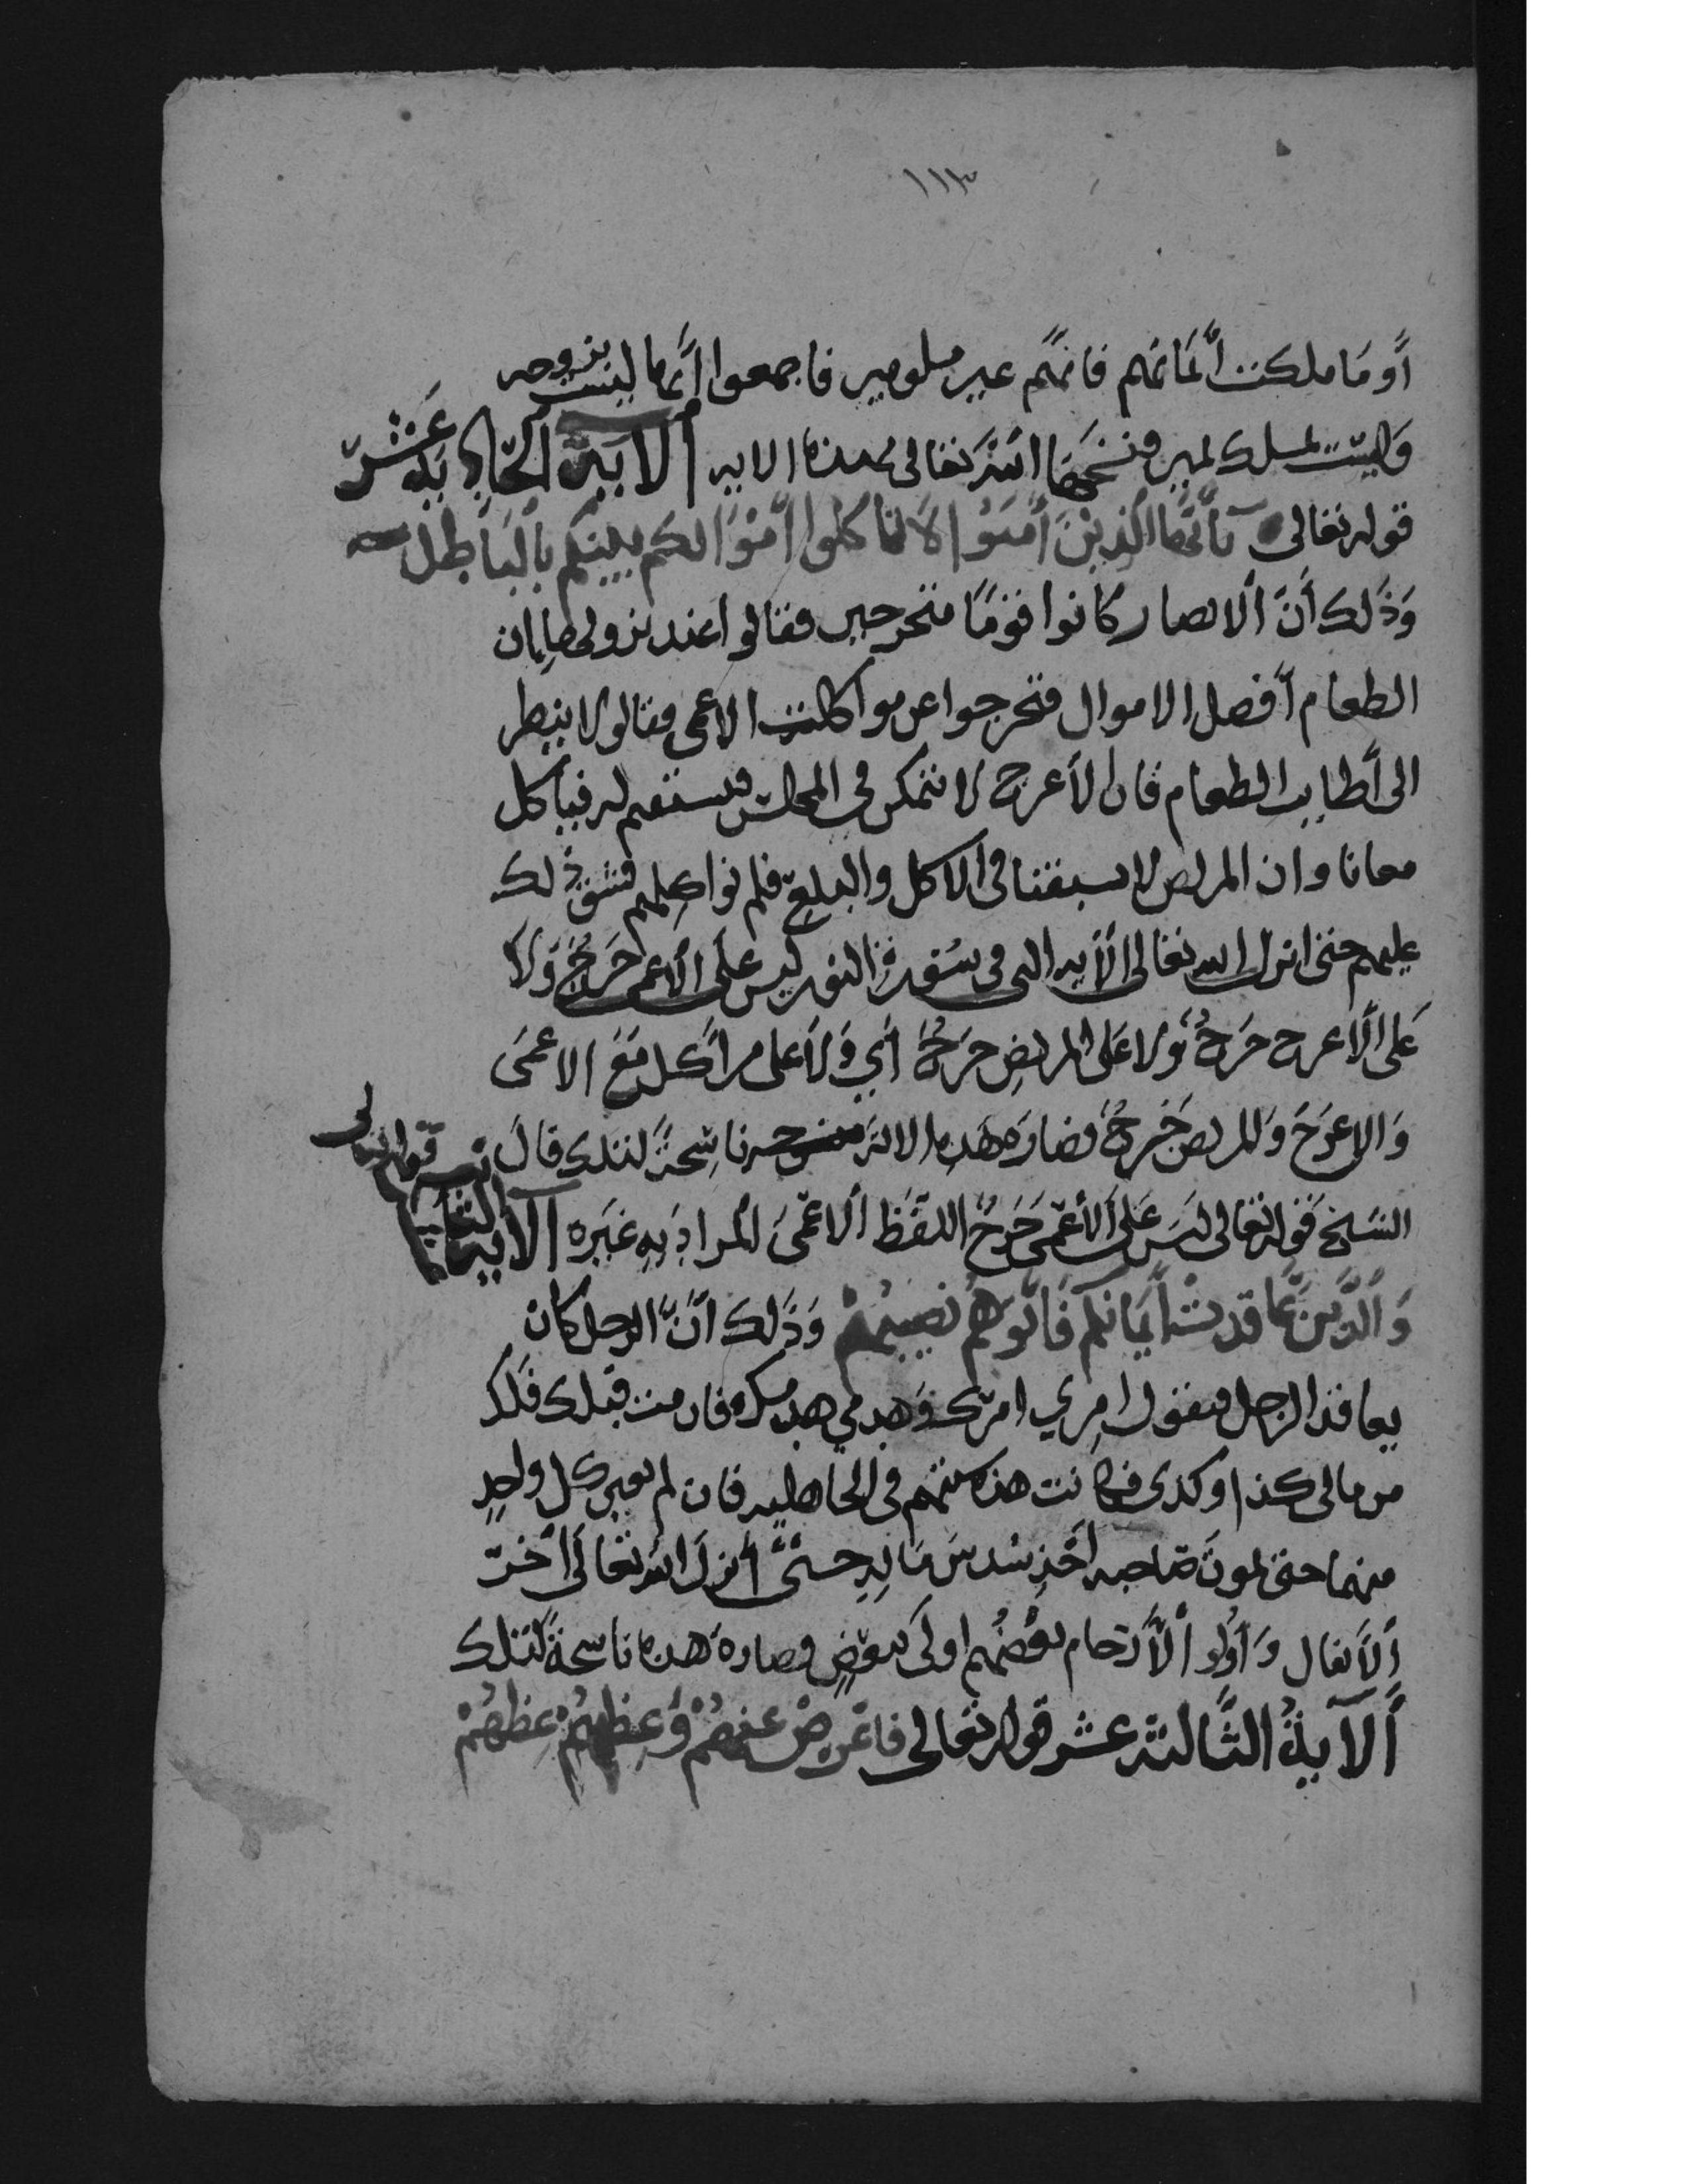 ١١٣
أو ما ملكت أيمانهم فانهم غير ملومين فاجمعوا أنها ليست بزوجه
وليست بملك يمين فنسخها الله تعالى بهذه الايه الآية الحادية عشر
قوله تعالى يأيها الذين أمنوا لا تأكلوا أموالكم بينكم بالباطل
وذلك أن الانصار كانوا قوما متحرجين فقالوا عند نزولها ان
الطعام أفضل الاموال فتحرجوا عن مواكلت الاعمى فقالوا لا ينظر
الى أطايب الطعام فان الأعرج لا يتمكن فى المجلس فيستقيم له فيأكل
معانا وان المريض لا يسبقنا فى الاكل والبلع فلم نواكلهم فشق ذلك
عليهم حتى انزل الله تعالى الأيه التى فى سورة النور ليس على الأعمى حرج ولا
على الأعرج حرج ولا على المريض حرج أي ولا على من أكل مع الاعمى
والاعرج والمريض حرج فصاره هذه الاية ناسخة لتلك قال
النسخ قوله تعالى ليس على الأعمى حرج اللفظ الاعمى المراد به غيره الآية الثانية
قوله تعالى
والذين عاقدت أيمانكم فأتوهم نصيبهم وذلك أن الرجل كان
يعاقد الرجل فيقول امري امرك وهدمي هدمك فان مت قبلك فلك
من مالى كذا وكدى فكانت هذه سنتهم فى الجاهليه فان لم يعين كل واحد
منهما حتى يموت صاحبه أخذ سدس ماله حتى أنزل الله تعالى أخرت
الأنفال وأولو الأرحام بعضهم اولى ببعض فصاره هذه ناسخة لتلك
الآية الثالثة عشر قوله تعالى فاعرض عنهم وعظهم عظهم